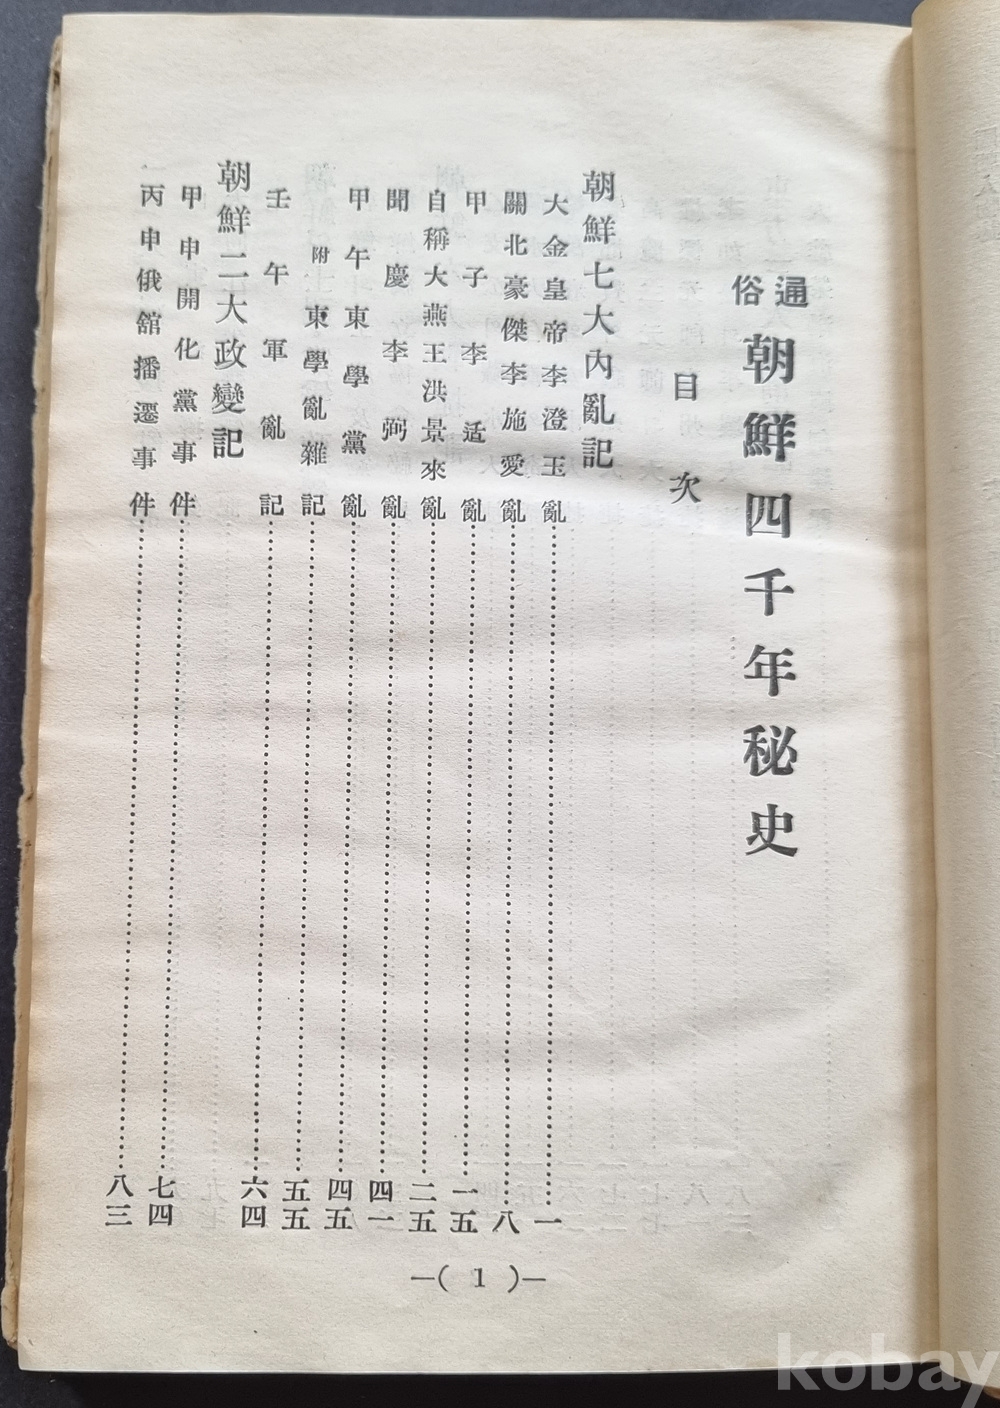 通俗 朝鮮四千年秘史
目次
朝鮮七大內亂記
大金皇帝李澄玉亂……一
關北豪傑李施愛亂……八
甲子李适亂……一五
自稱大燕王洪景來亂……二五
聞慶李弼亂……四一
甲午東學黨亂……四五
附東學亂雜記……五五
壬午軍亂記……六四
朝鮮二大政變記
甲申開化黨事件……七四
丙申俄舘播遷事件……八三
—( 1 )—
kobay